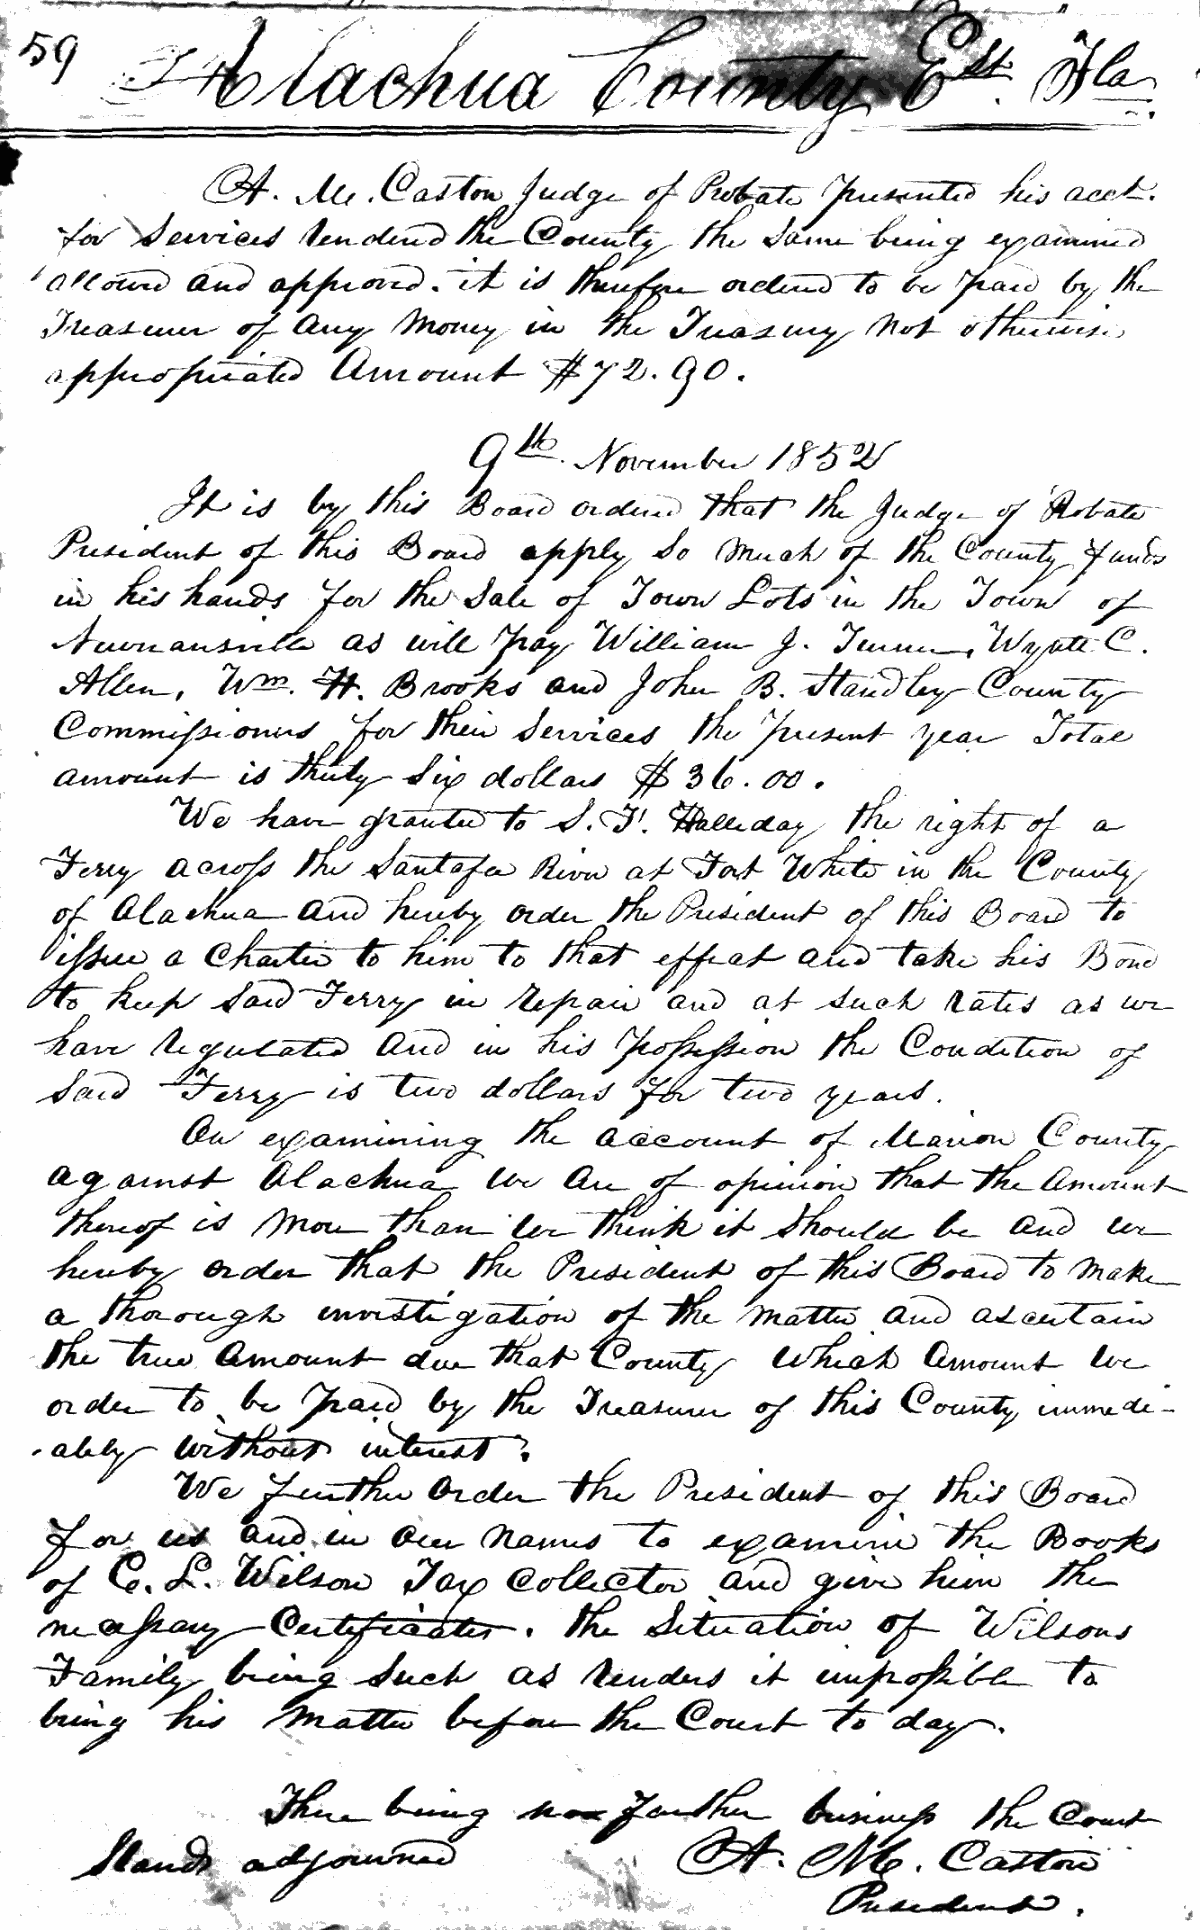 59 Alachua County Est. Fla.
A. Mc. Caston Judge of Probate presented his acct.
for Services rendered the County the same being examined
allowed and approved. it is therefore ordered to be paid by the
Treasurer of any Money in the Treasury not otherwise
appropriated Amount $72.90.
9th November 1852
It is by this Board ordered that the Judge of Probate
President of this Board apply so much of the County funds
in his hands for the Sale of Town Lots in the Town of
Newnansville as will pay William J. Turner, Wyatt C.
Allen, Wm. H. Brooks and John B. Standley County
Commissioners for their Services the present year Total
amount is thirty Six dollars $36.00.
We have granted to S. F. Halleday the right of a
Ferry across the Santafee River at Fort White in the County
of Alachua and hereby order the President of this Board to
issue a Charter to him to that effect and take his Bond
to keep said Ferry in repair and at such rates as we
have regulated and in his possession the Condition of
Said Ferry is two dollars for two years.
On examining the account of Marion County
against Alachua we are of opinion that the Amount
thereof is More than we think it Should be and we
hereby order that the President of this Board to make
a thorough investigation of the matter and ascertain
the true Amount due that County which Amount we
order to be paid by the Treasurer of this County immedi-
ably without interest.
We further order the President of this Board
for us and in our names to examine the Books
of C. L. Wilson Tax Collector and give him the
necessary Certificates. the Situation of Wilsons
Family being such as renders it impossible to
bring his matter before the Court to day.
There being no further business the Court
Stands adjourned A. Mc. Caston
President.